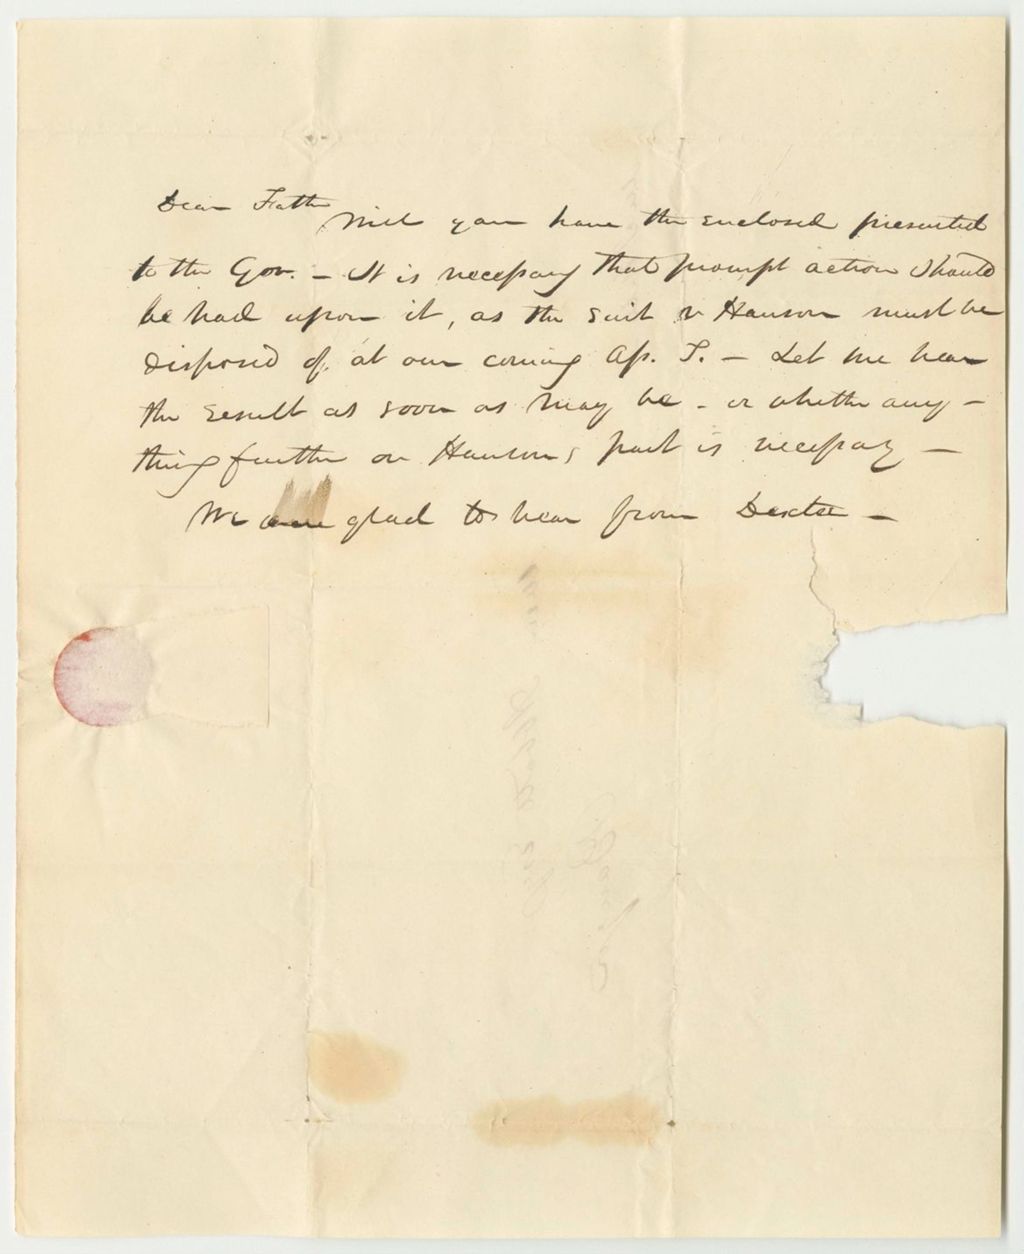 Dear Father
Will you have the enclosed presented
to the Gov. – It is necessary that prompt action should
be had upon it, as the suit v Hanson must be
disposed of, at our coming Ap. T. – Let me hear
the result as soon as may be – or whether any –
thing further on Hansons part is necessary –
We are glad to hear from Dexter –